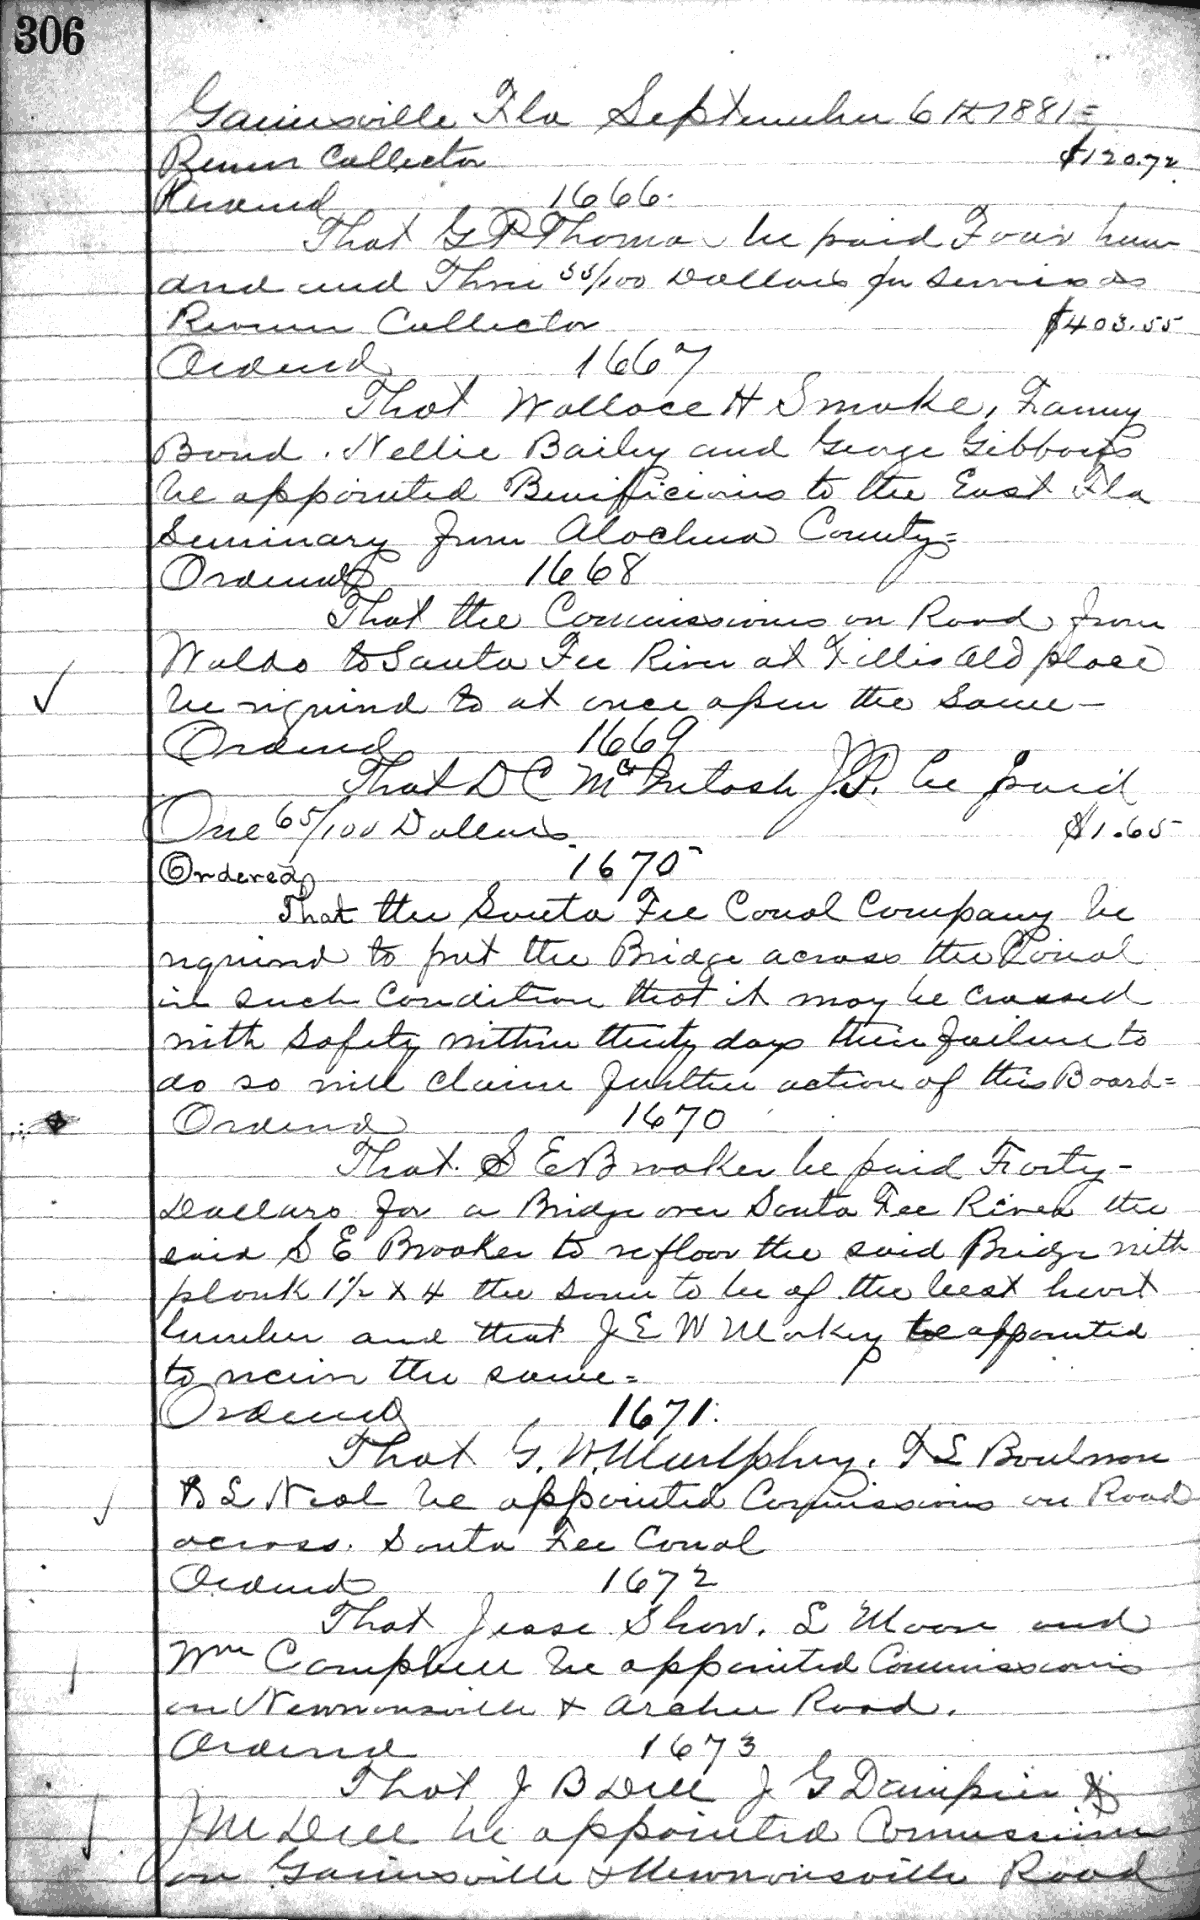 306
Gainesville Fla September 6th 1881=
Revenue Collector $120.72
Received 1666.
That G P Thomas be paid Four hun
dred and Three 55/100 Dollars for services as
Revenue Collector $403.55
Ordered 1667
That Wallace H Smoke, Fanny
Bond. Nellie Bailey and George Gibbons
be appointed Benificiaries to the East Fla
Seminary from Alachua County=
Ordered 1668
That the Commissioners on Road from
Waldo to Santa Fee River at Old place
be required to at once open the same—
Ordered 1669
That D C McIntosh J.P. be paid
One 65/100 Dollars $1.65
Ordered 1670
That the Santa Fee Canal Company be
required to put the Bridge across the Canal
in such Condition that it may be crossed
with Safety within thirty days their failure to
do so will claim further action of this Board=
Ordered 1670
That S E Brooker be paid Forty—
Dollars for a Bridge over Santa Fee River the
said S E Brooker to refloor the said Bridge with
plank 1 1/2 x 4 the same to be of the best heart
lumber and that J E W Markey be appointed
to receive the same=
Ordered 1671.
That G. W. Murlphey. T L Boulware
B L Neal be appointed Commissioners on Road
across. Santa Fee Canal
Ordered 1672
That Jesse Shaw. L Moore and
Wm Campbell be appointed Commissioners
on Newnansville & Archer Road.
Ordered 1673
That J B Dell J G Dampier &
J M Dell be appointed Commissioners
on Gainesville & Newnansville Road